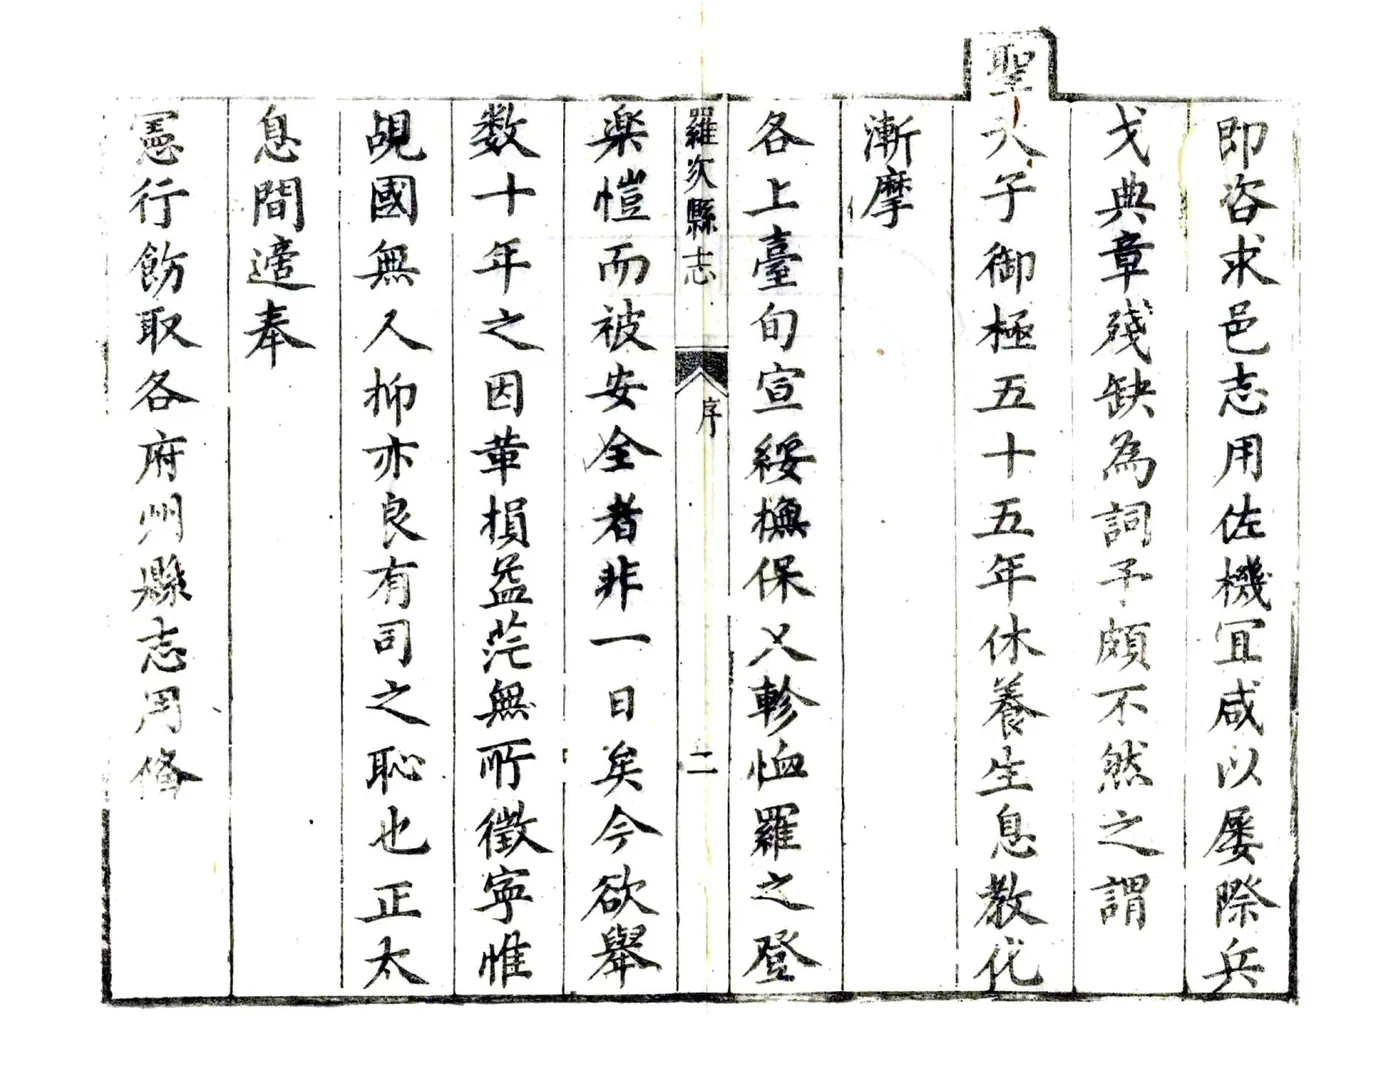 即咨求邑志用佐機宜咸以屡際兵
戈典章殘缺為詞予頗不然之謂
聖天子御極五十五年休養生息教化
漸摩
各上臺旬宣綏橅保乂軫恤羅之登
羅次縣志 序 二
楽愷而被安全者非一日矣今欲舉
数十年之因革損益茫無所徵寜惟
覘國無人抑亦良有司之恥也正太
息間適奉
憲行飭取各府州縣志周修